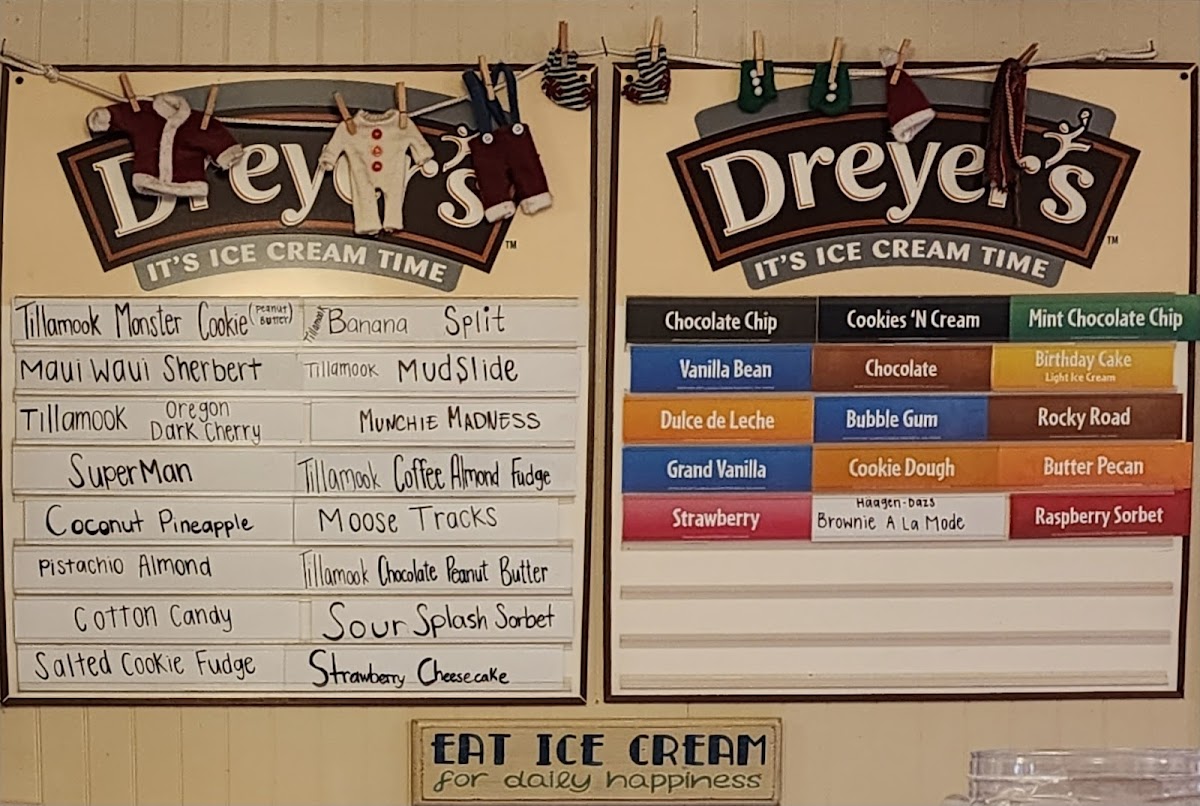 Dreyer's
™
IT'S ICE CREAM TIME
Tillamook Monster Cookie (Peanut Butter)
Tillamook Banana Split
Maui Waui Sherbert
Tillamook MudSlide
Tillamook Oregon
Dark Cherry
MUNCHIE MADNESS
SuperMan
Tillamook Coffee Almond Fudge
Coconut Pineapple
Moose Tracks
Pistachio Almond
Tillamook Chocolate Peanut Butter
Cotton Candy
Sour Splash Sorbet
Salted Cookie Fudge
Strawberry Cheesecake
Dreyer's
™
IT'S ICE CREAM TIME
Chocolate Chip
Cookies 'N Cream
Mint Chocolate Chip
Vanilla Bean
Chocolate
Birthday Cake
Light Ice Cream
Dulce de Leche
Bubble Gum
Rocky Road
Grand Vanilla
Cookie Dough
Butter Pecan
Strawberry
Häagen-Dazs
Brownie A La Mode
Raspberry Sorbet
EAT ICE CREAM
for daily happiness